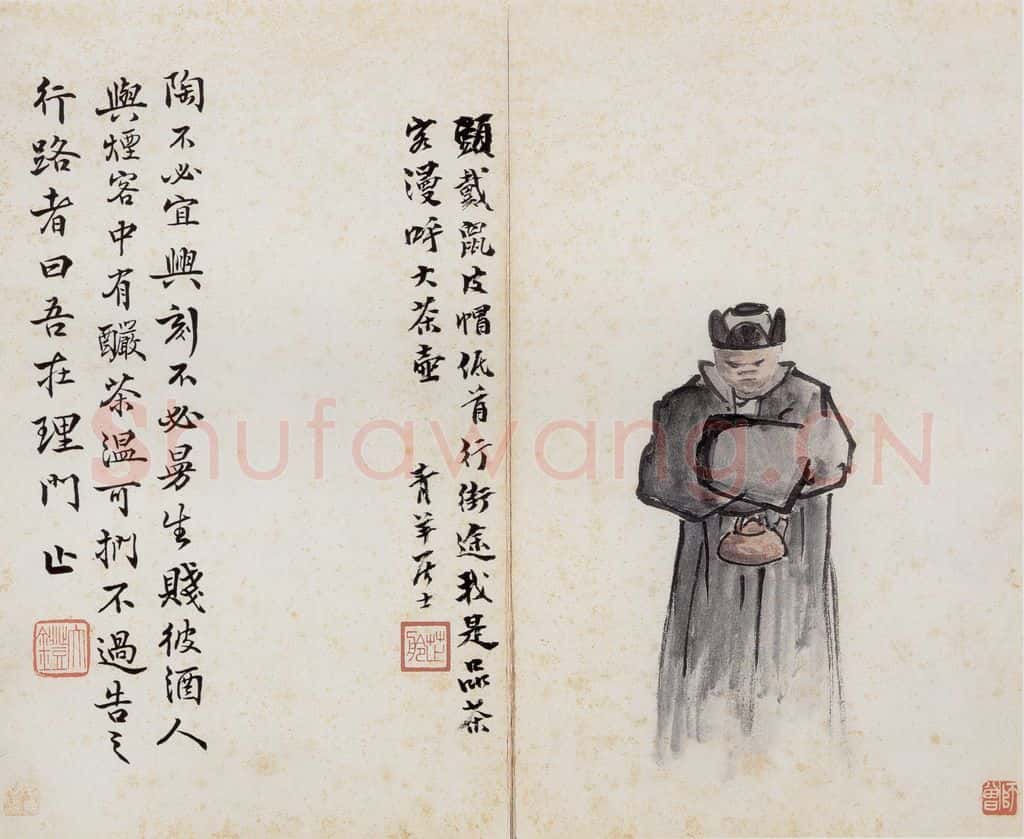 頭戴鼠皮帽低首行街途我是品茶
客漫呼大茶壺
青羊居士
芷舲
陶不必宜興刻不必曼生賤彼酒人
與煙客中有釅茶溫可捫不過告之
行路者曰吾在理門止
師曾
Shufawang.CN